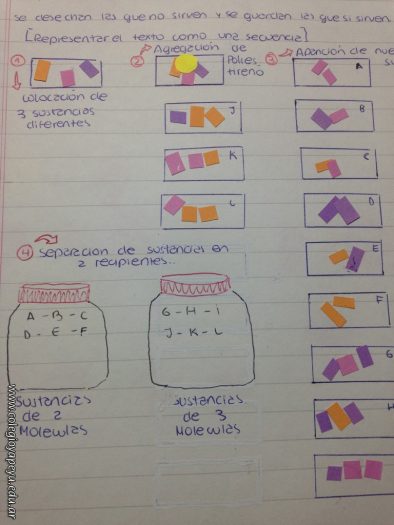 se desechan las que no sirven y se guardan las que si sirven.
[Representar el texto como una secuencia]
1
colocación de
3 sustancias
diferentes
2 Agregación de
Polies_
tireno
3 Aparición de nue
A
B
C
D
E
F
G
H
J
K
L
4 Separación de sustancias en
2 recipientes...
A - B - C
D - E - F
Sustancias
de 2
Moleculas
G - H - I
J - K - L
Sustancias
de 3
Moleculas
www.colegioyapeyu.edu.ar